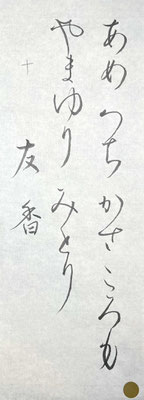 あめつちかさころも
やまゆりみとり
十
友香